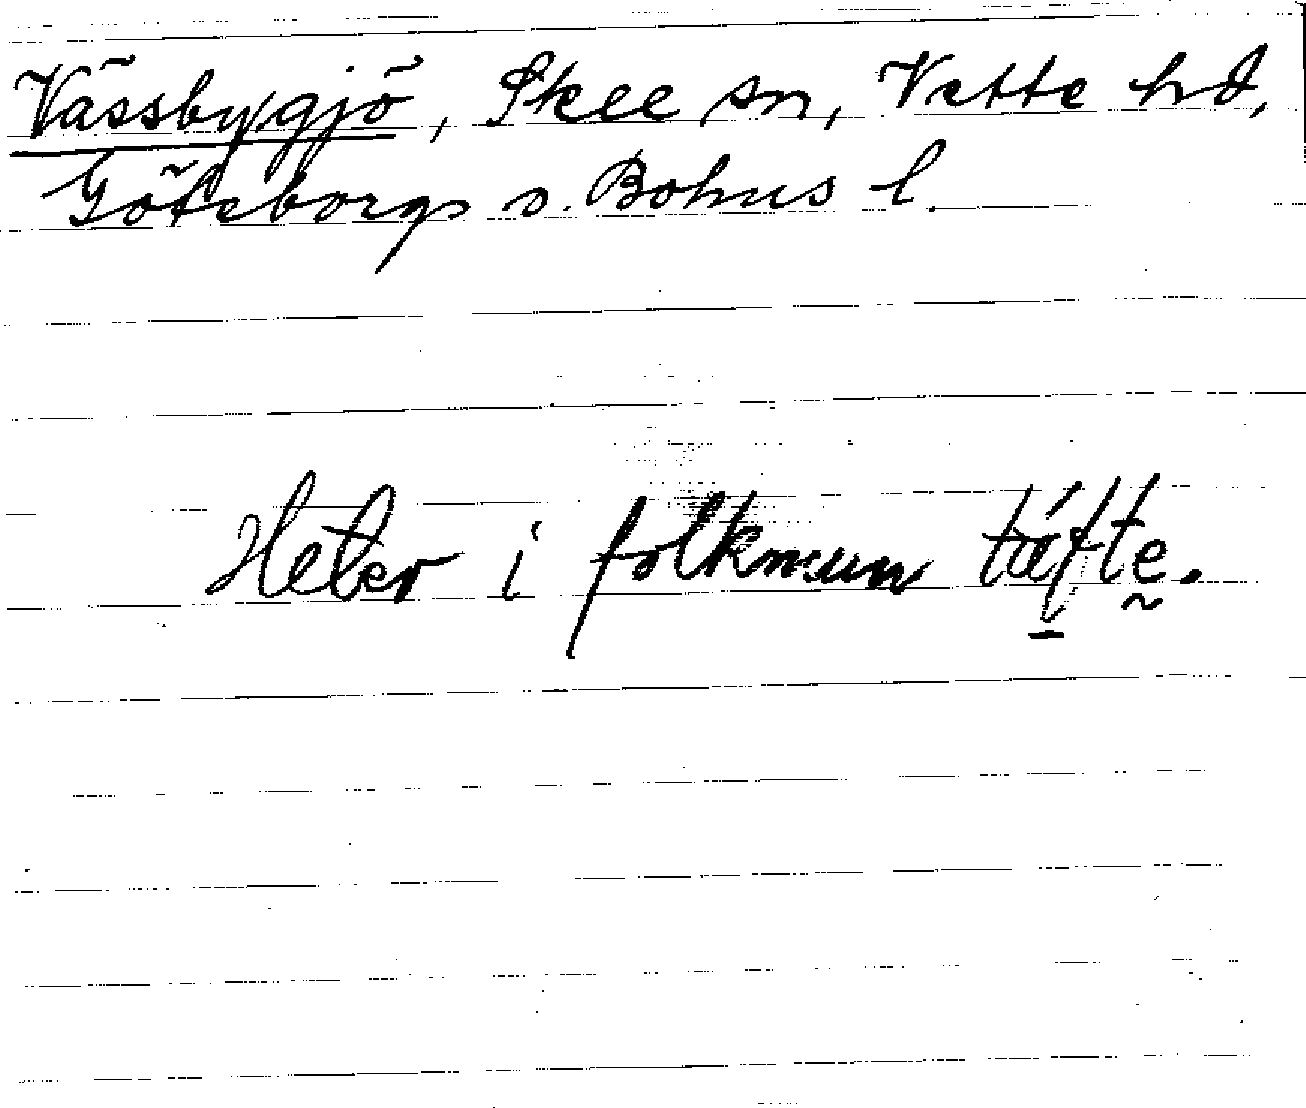 Vässbygjö, Skee sn, Vette hd,
Göteborgs o. Bohus l.
Heter i folkmun